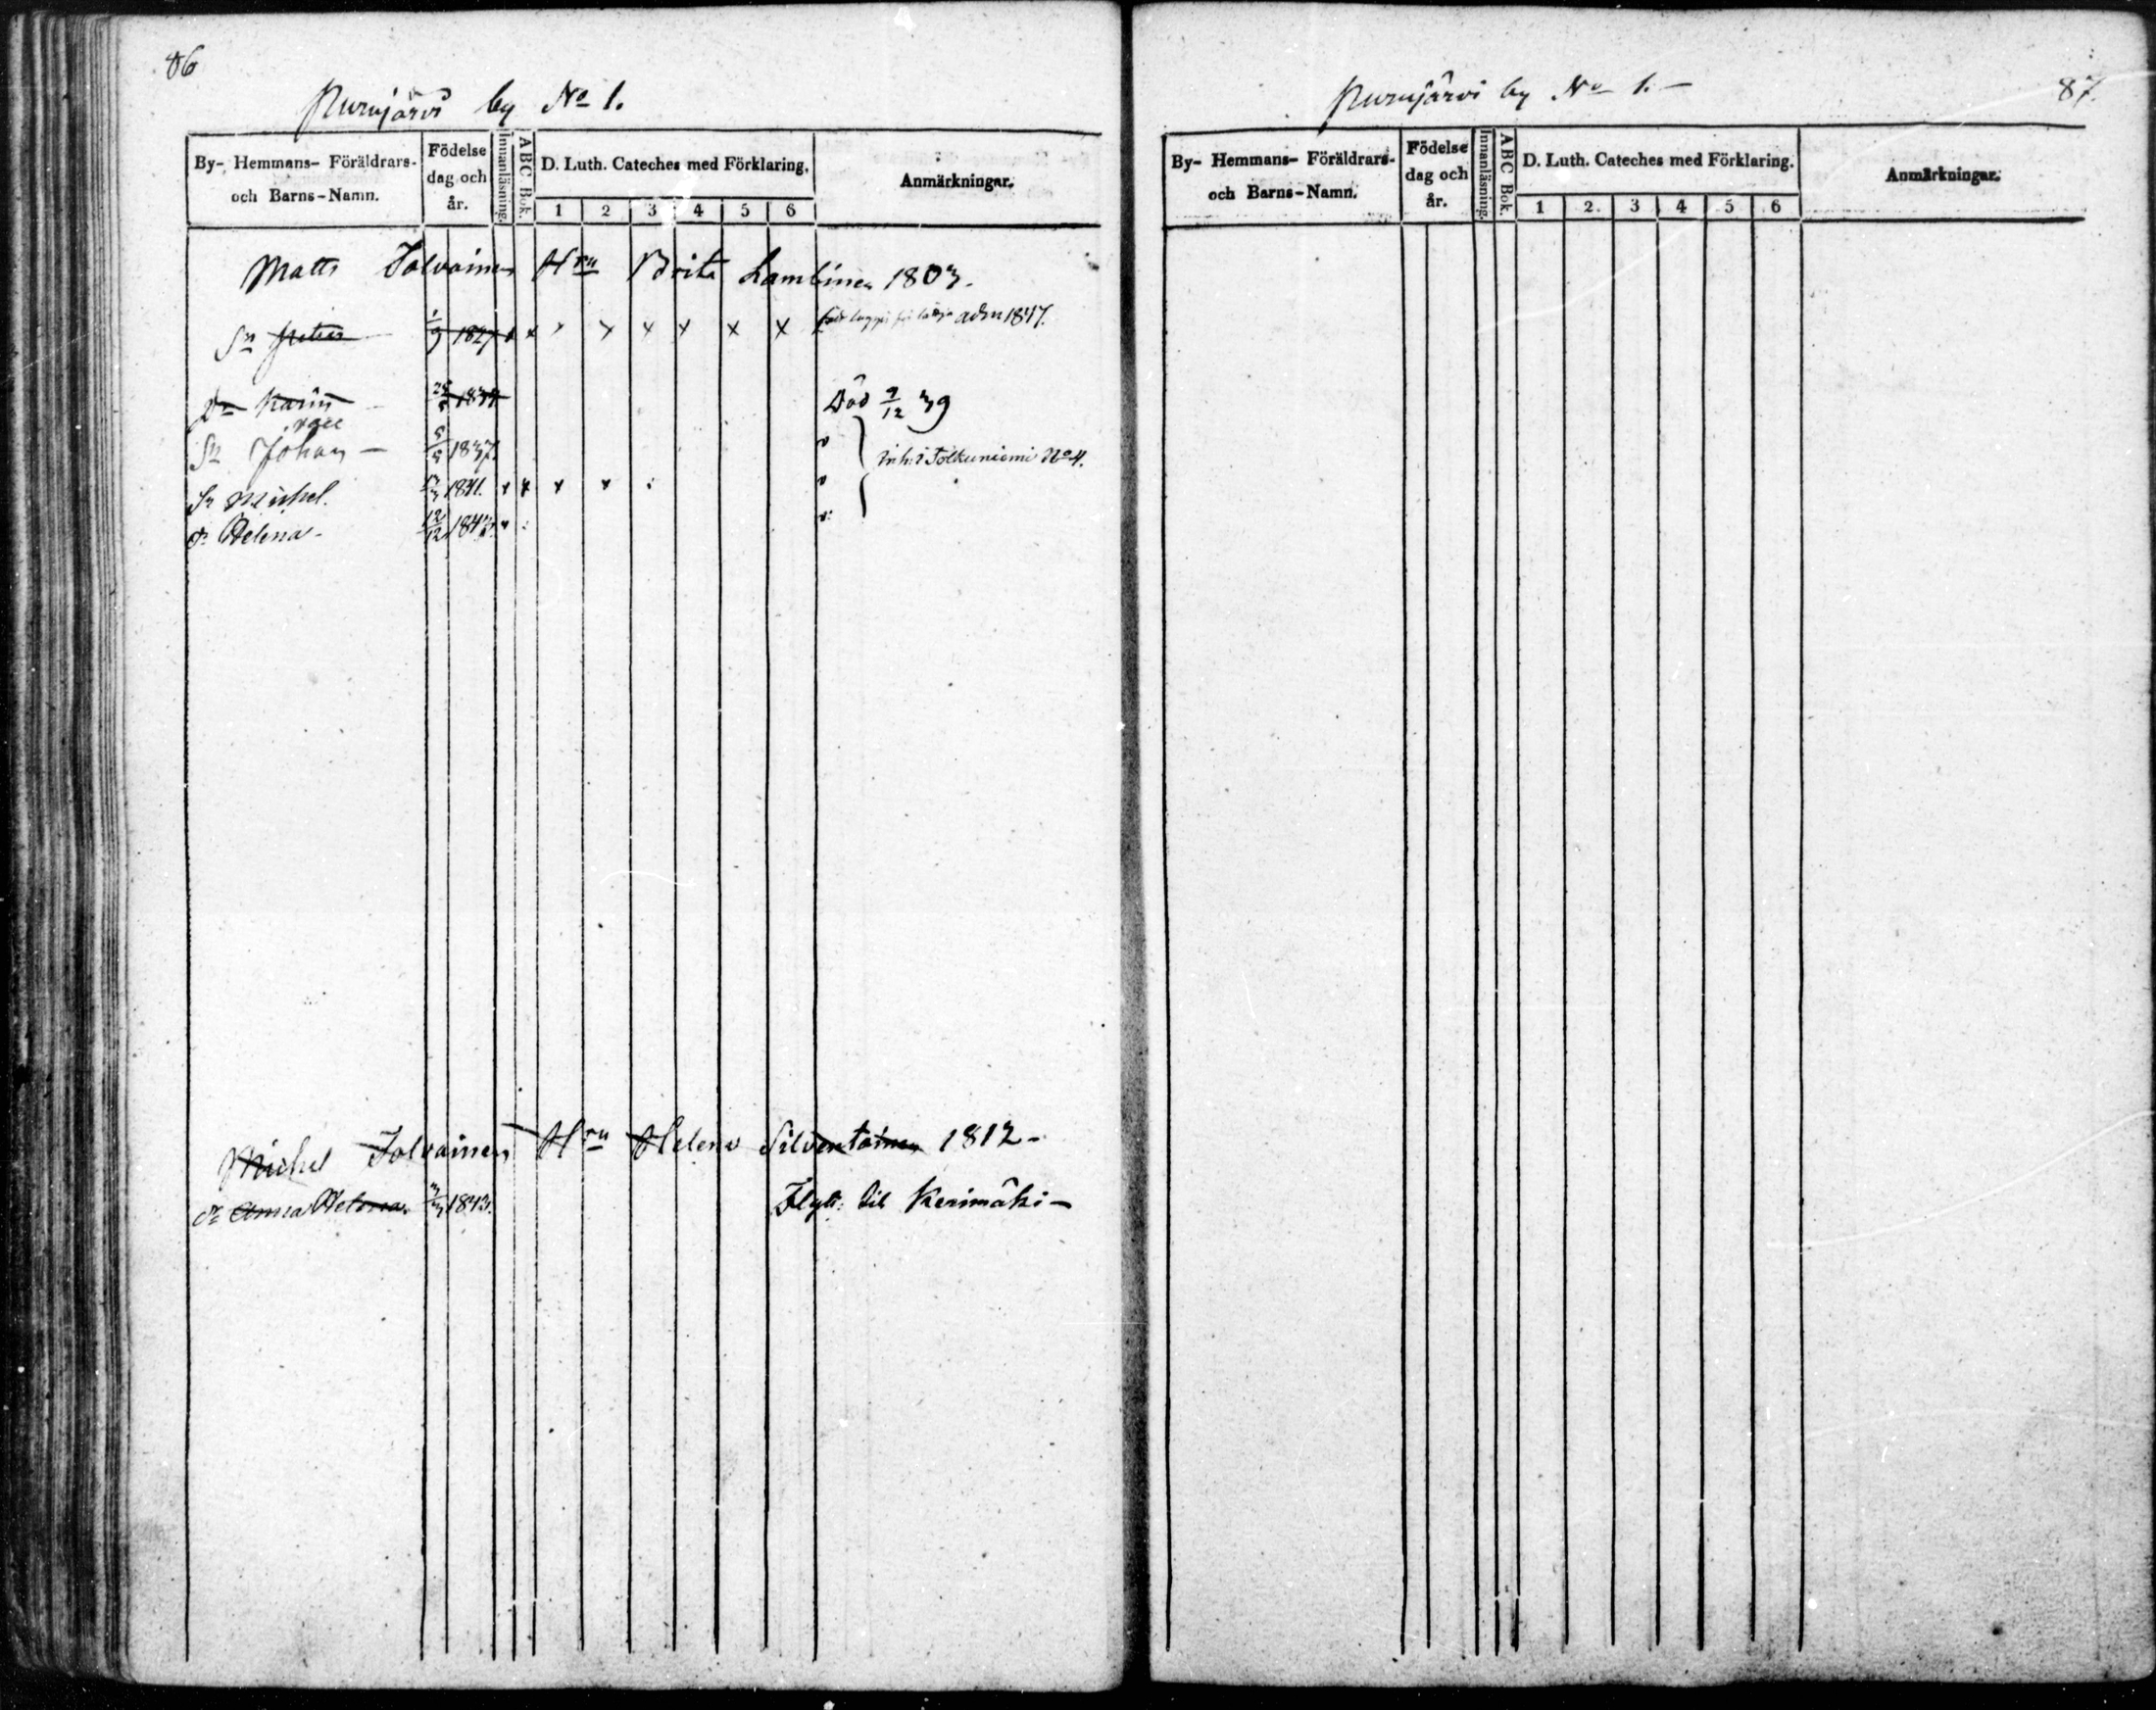 86
Purujärvi by No 1.
By- Hemmans- Föräldrars- och Barns-Namn.
Födelse dag och år.
Innanläsning.
ABC Bok.
D. Luth. Cateches med Förklaring.
1 2 3 4 5 6
Anmärkningar.
Matts Tolvainen Hru Brita Lambinen 1803.
Sn Petter 1/9 1827 x x x x x x x x adm 1847.
Dr Karin 1834 Död 9/12 39
Sn Johan 5/5 1837.
inh. i Tolkuniemi No 4.
Sn Michel. 1841. x x x x
Dr Helena 12/12 1843.
Michel Tolvainen Hru Helena Silventoinen 1812-
Dr Anna Helena. 1843. Flytt. til Kerimäki-
Purujärvi by No 1.-
87.
By- Hemmans- Föräldrars- och Barns-Namn.
Födelse dag och år.
Innanläsning.
ABC Bok.
D. Luth. Cateches med Förklaring.
1 2. 3 4 5 6
Anmärkningar.